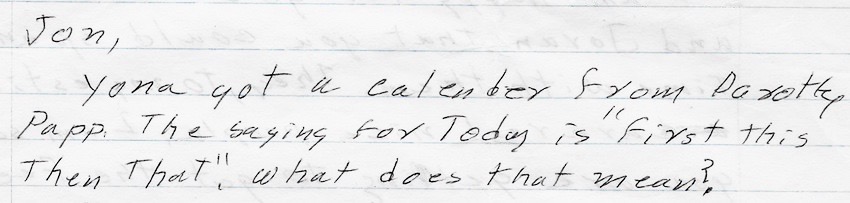 Jon,
Yona got a calender from Dorothy
Papp. The saying for Today is "First this
Then That". What does that mean?